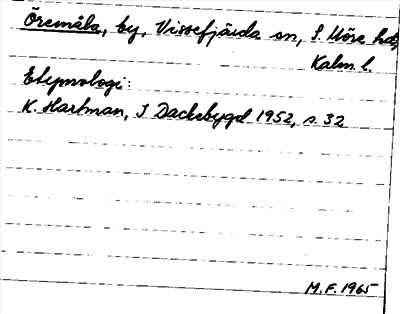 Öremåla, by, Vissefjärda sn, S. Möre hd,
Kalm. l.
Etymologi:
K. Hartman, I Dackebygd 1952, s. 32
M.F. 1965